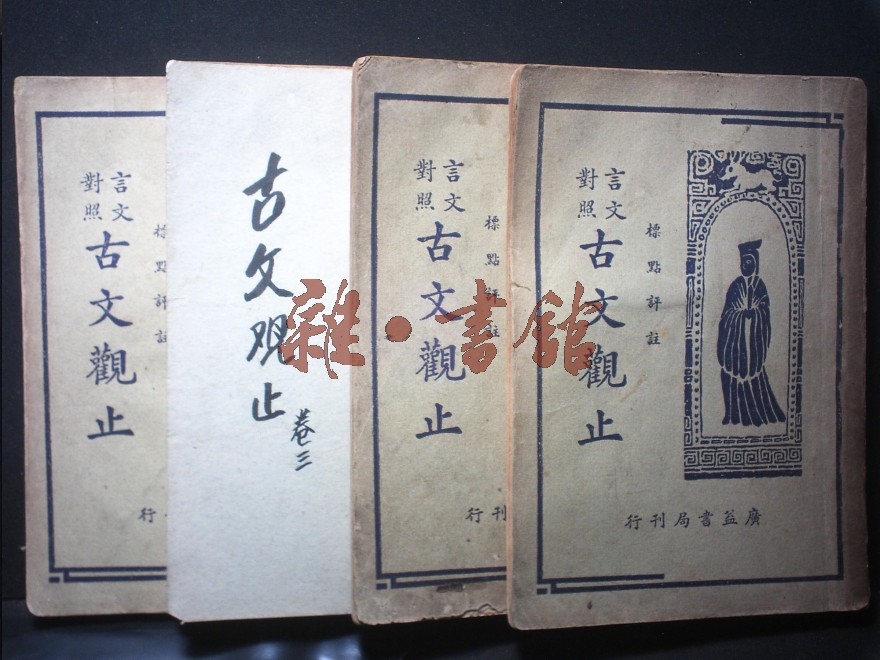 言文
對照
標點評註
古文觀止
行
古文观止
卷三
言文
對照
標點評註
古文觀止
刊行
言文
對照
標點評註
古文觀止
廣益書局刊行
雜·書館